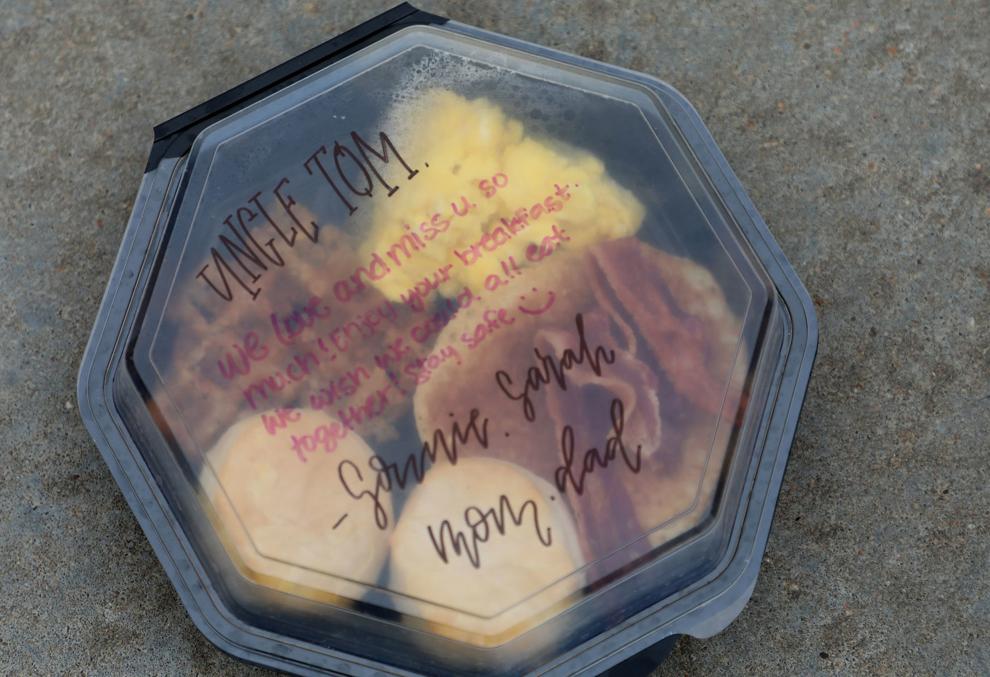 UNCLE TOM.
We love and miss u. so
much! Enjoy your breakfast.
We wish we could all eat
together! Stay safe :)
- Sonnie. Sarah
mom. dad